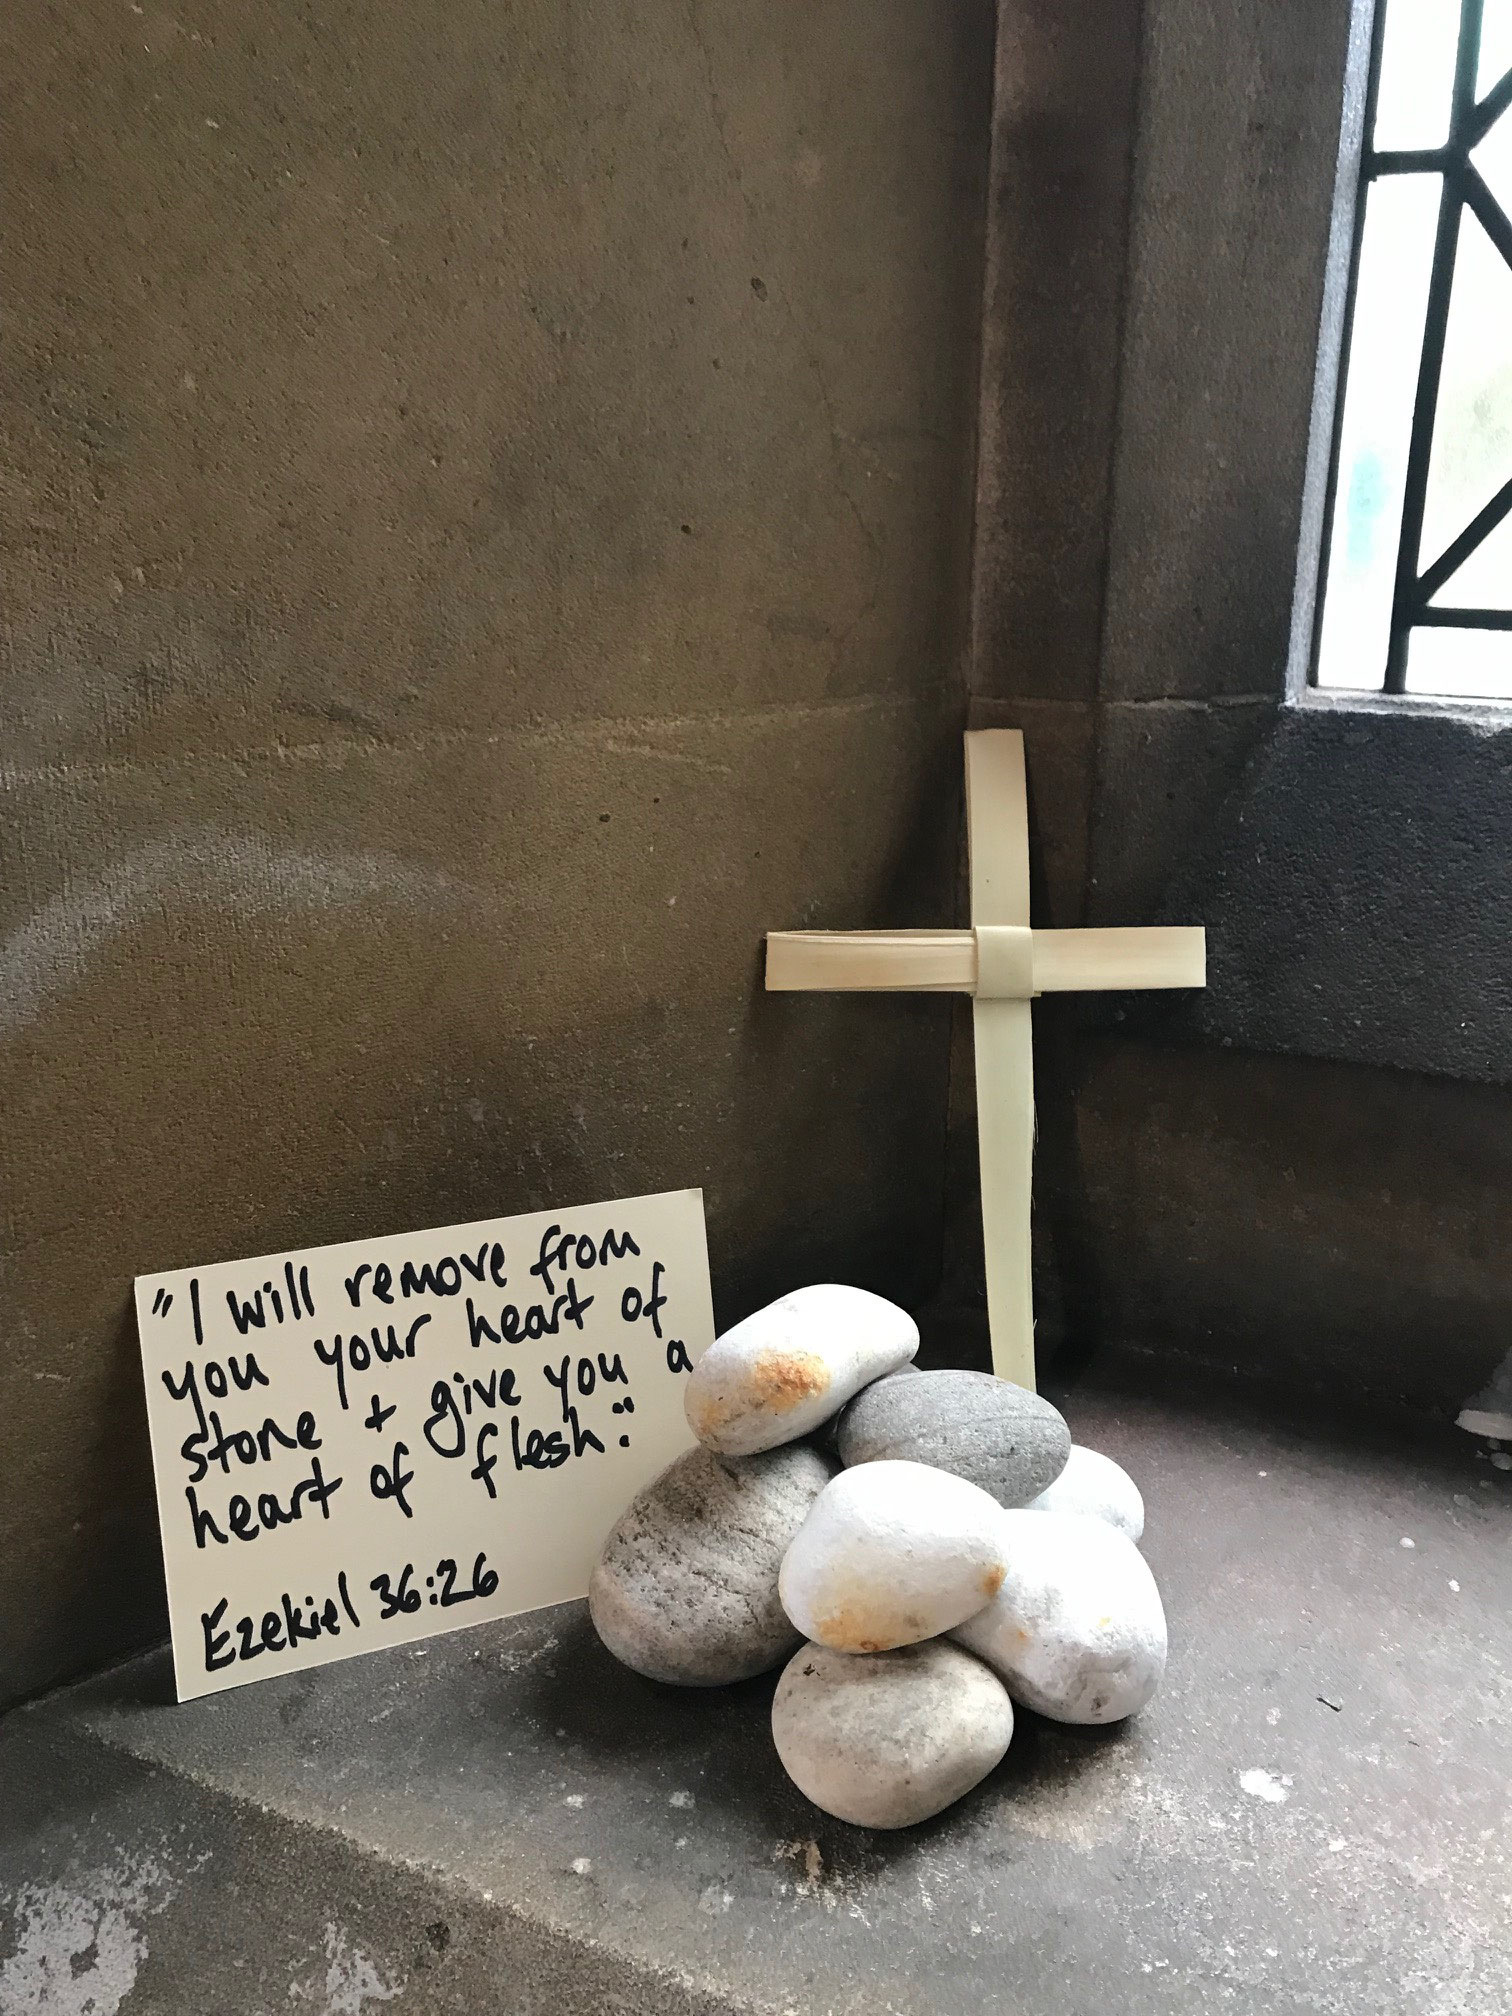 "I will remove from
you your heart of
stone + give you a
heart of flesh."
Ezekiel 36:26